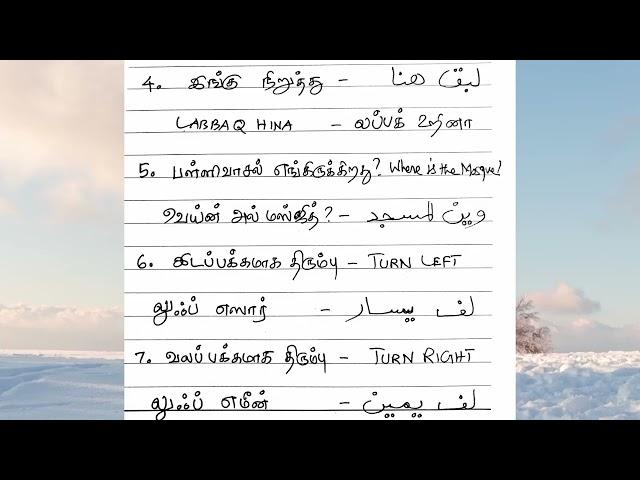 4. இங்கு நிறுத்து – لبق هنا
LABBAQ HINA – லப்பக் ஹினா
5. பள்ளிவாசல் எங்கிருக்கிறது? Where is the Mosque?
வய்ன் அல் மஸ்ஜித்? – وين المسجد
6. இடப்பக்கமாக திரும்பு – TURN LEFT
லுஃப் எஸார் – لف يسار
7. வலப்பக்கமாக திரும்பு – TURN RIGHT
லுஃப் எமீன் – لف يمين